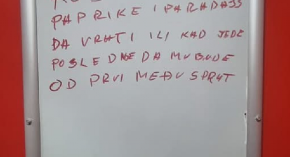 PAPRIKE I PARADAJS
DA VRATI ILI KAD JEDE
POSLEDNJE DA MU BUDE
OD PRVI MEĐUSPRAT